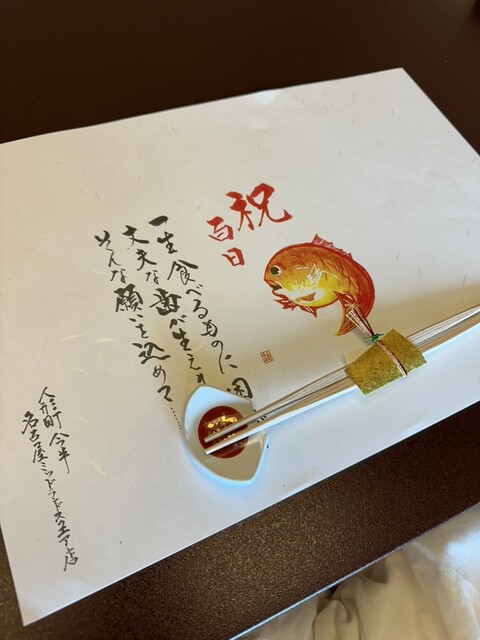 祝
百日
一生食べるものに困
丈夫な歯が生え
そんな願いを込めて……
人形町 今半
名古屋ミッドランドスクエア店